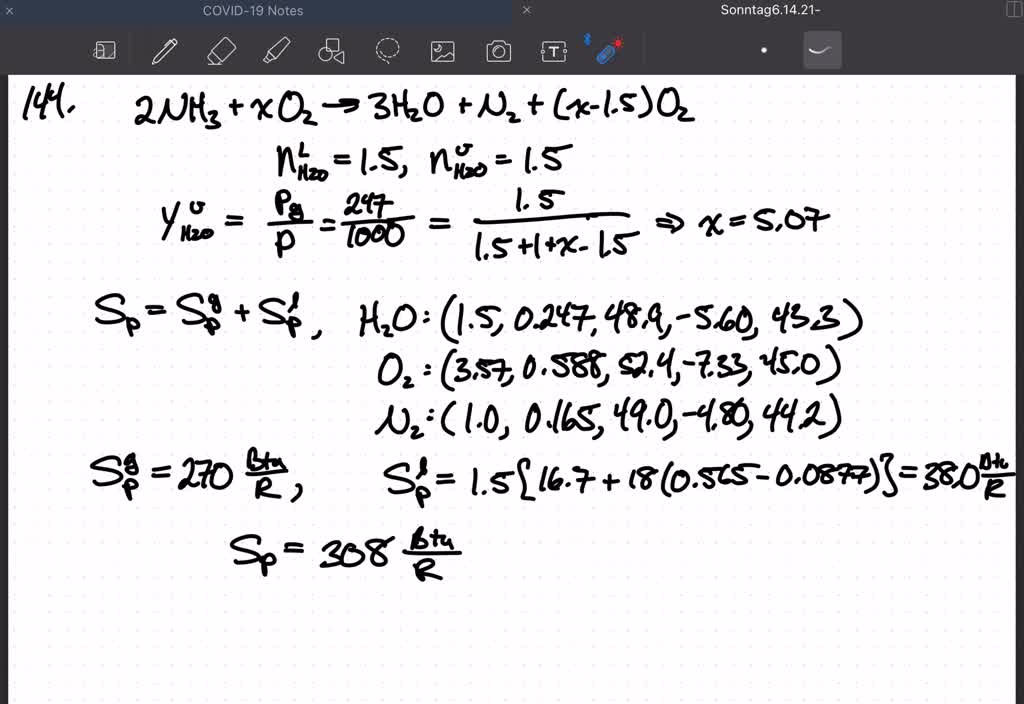 COVID-19 Notes
Sonntag6.14.21-
144. 2NH₃ + xO₂ → 3H₂O + N₂ + (x-1.5)O₂
n^L_H₂O = 1.5, n^v_H₂O = 1.5
y^v_H₂O = Pg/P = 247/1000 = 1.5/(1.5+1+x-1.5) ⇒ x = 5.07
Sp = Sp^g + Sp^l, H₂O: (1.5, 0.247, 48.9, -5.60, 43.3)
O₂: (3.57, 0.588, 52.4, -7.33, 45.0)
N₂: (1.0, 0.165, 49.0, -4.80, 44.2)
Sp^g = 270 Btu/R, Sp^l = 1.5[16.7 + 18(0.565 - 0.0877)] = 38.0 Btu/R
Sp = 308 Btu/R